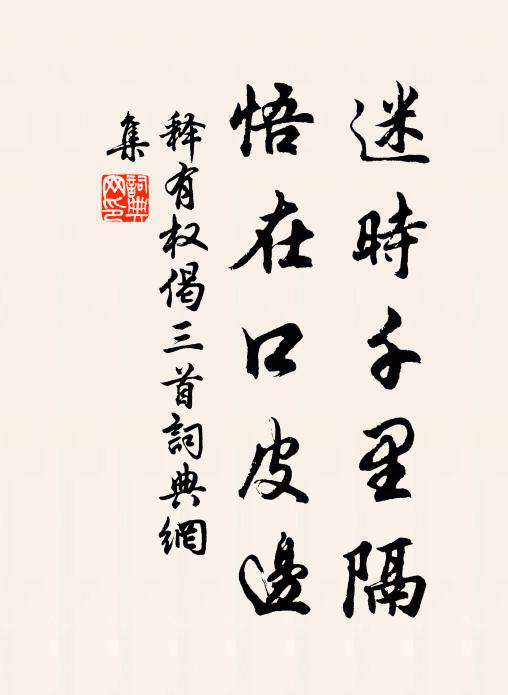 迷時千里隔
悟在口皮邊
释有权偈三首詞典網
集
詞典网印